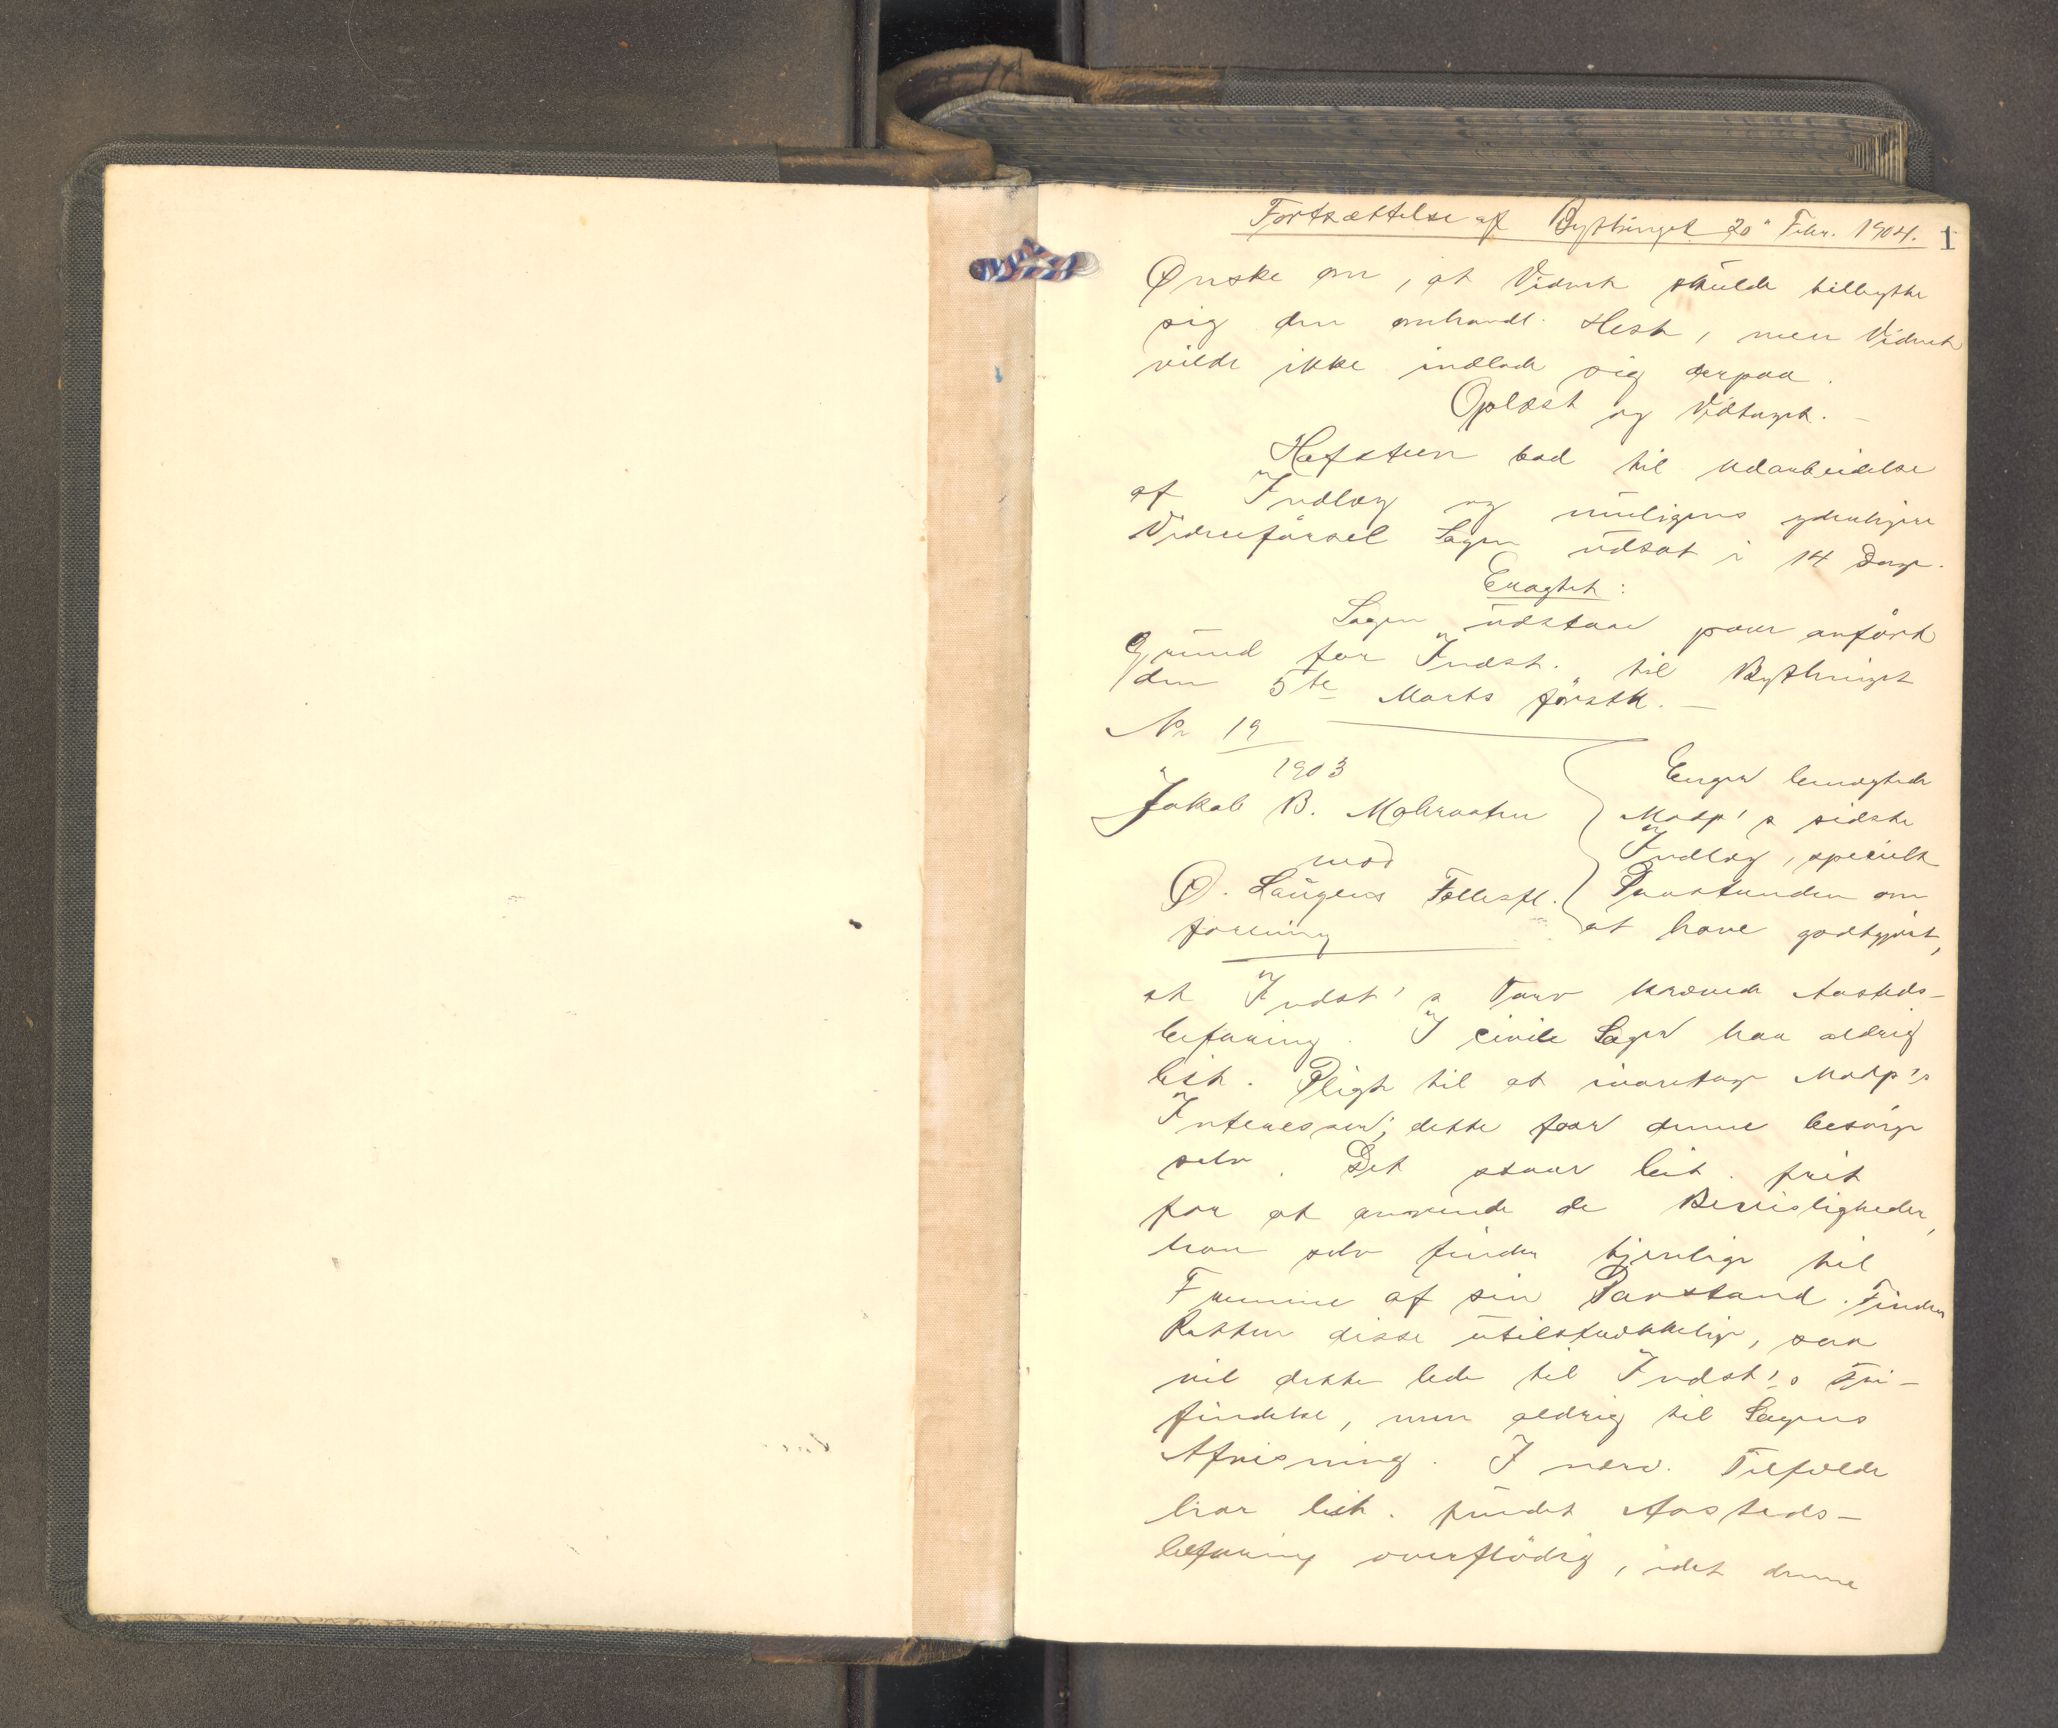 Fortsættelse af Bythinget 20de Febr. 1904. 1
Ønske om, at Vidnet skulde tilbytte
sig den omhandl. Hest, men Vidnet
vilde ikke indlade sig derpaa.
Oplæst og Vedtaget. —
Hafsteen bad til Udarbeidelse
af Indlæg og muligens yderligere
Vidneførsel Sagen udsat i 14 Dage.
Eragtet:
Sagen udstaar paa anførte
Grund for Indst. til Bythinget
den 5te Marts förstk. —
No 19
1903
Jakob B. Mobraaten
mod
Ø. Laugens Fellesfl.
forening
Enger benægtede
Modp's sidste
Indlæg, specielt
Paastanden om
at have godtgjört,
at Indst's Tarv krævede Aasteds-
befaring. I civile Sager har aldrig
Cit. Pligt til at ivaretage Modp's
Interesser; dette faar denne besörge
selv. Det staar Cit. frit
for at anvende de Bevisligheder,
han selv finder tjenlige til
Fremme af sin Paastand. Finder
Retten disse utilstrækkelige, saa
vil dette lede til Indst's Fri-
findelse, men aldrig til Sagens
Afvisning. I nærv. Tilfælde
har Cit. fundet Aasteds-
befaring overflödig, idet denne